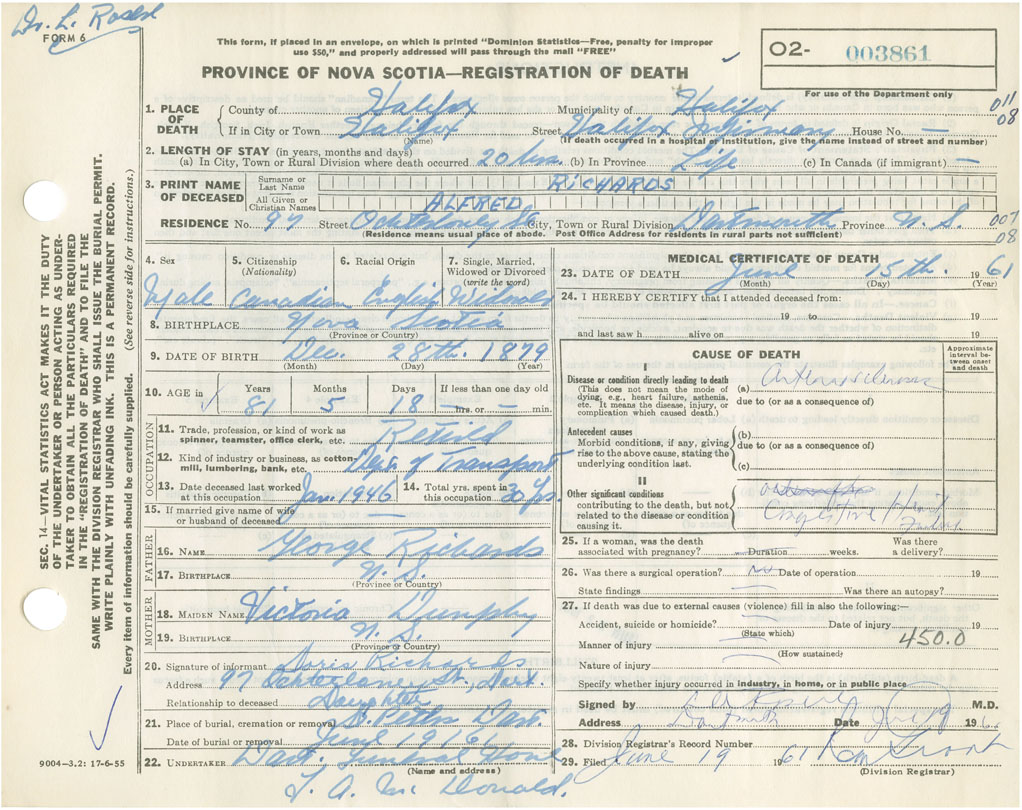 Dr. L. Rosere
FORM 6
This form, if placed in an envelope, on which is printed "Dominion Statistics—Free, penalty for improper
use $50," and properly addressed will pass through the mail "FREE"
O2- 003861
For use of the Department only
PROVINCE OF NOVA SCOTIA—REGISTRATION OF DEATH
011
08
1. PLACE OF DEATH County of Halifax Municipality of Halifax
If in City or Town Halifax Street Halifax Infirmary House No. —
(Name) (If death occurred in a hospital or institution, give the name instead of street and number)
2. LENGTH OF STAY (in years, months and days)
(a) In City, Town or Rural Division where death occurred 20 (b) In Province Life (c) In Canada (if immigrant) —
3. PRINT NAME OF DECEASED
Surname or Last Name RICHARDS
All Given or Christian Names ALFRED
RESIDENCE No. 97 Street Ochterloney St City, Town or Rural Division Dartmouth Province N.S.
007
08
(Residence means usual place of abode. Post Office Address for residents in rural parts not sufficient)
4. Sex 5. Citizenship (Nationality) 6. Racial Origin 7. Single, Married, Widowed or Divorced (write the word)
Male Canadian English Widowed
8. BIRTHPLACE Nova Scotia
(Province or Country)
9. DATE OF BIRTH Dec. 28th. 1879
(Month) (Day) (Year)
10. AGE in Years Months Days If less than one day old
81 5 18 — hrs. or — min.
OCCUPATION
11. Trade, profession, or kind of work as spinner, teamster, office clerk, etc. Retired
12. Kind of industry or business, as cotton-mill, lumbering, bank, etc. Dept. of Transport
13. Date deceased last worked at this occupation Jan. 1946 14. Total yrs. spent in this occupation 30 Yrs.
15. If married give name of wife or husband of deceased —
FATHER
16. NAME George Richards
17. BIRTHPLACE N.S.
(Province or Country)
MOTHER
18. MAIDEN NAME Victoria Dunphy
19. BIRTHPLACE N.S.
(Province or Country)
20. Signature of informant Doris Richards
Address 97 Ochterloney St., Dart.
Relationship to deceased Daughter
21. Place of burial, cremation or removal St. Peters Dart
Date of burial or removal June 19 1961
22. UNDERTAKER Dart. Funeral Home
(Name and address)
T. A. Mc Donald.
MEDICAL CERTIFICATE OF DEATH
23. DATE OF DEATH June 15th. 1961
(Month) (Day) (Year)
24. I HEREBY CERTIFY that I attended deceased from:
19 to 19
and last saw h alive on 19
CAUSE OF DEATH
Approximate interval between onset and death
I
Disease or condition directly leading to death
(This does not mean the mode of dying, e.g., heart failure, asthenia, etc. It means the disease, injury, or complication which caused death.)
(a) Arteriosclerosis
due to (or as a consequence of)
Antecedent causes
Morbid conditions, if any, giving rise to the above cause, stating the underlying condition last.
(b)
due to (or as a consequence of)
(c)
II
Other significant conditions
contributing to the death, but not related to the disease or condition causing it.
Congestive Heart Failure
25. If a woman, was the death associated with pregnancy? Duration weeks. Was there a delivery?
26. Was there a surgical operation? No Date of operation 19
State findings Was there an autopsy?
27. If death was due to external causes (violence) fill in also the following:—
Accident, suicide or homicide? Date of injury 19
(State which)
450.0
Manner of injury
(How sustained)
Nature of injury
Specify whether injury occurred in industry, in home, or in public place
Signed by M.D.
Address Dartmouth Date 196
28. Division Registrar's Record Number
29. Filed June 19 1961
(Division Registrar)
SEC. 14—VITAL STATISTICS ACT MAKES IT THE DUTY
OF THE UNDERTAKER OR PERSON ACTING AS UNDER-
TAKER TO OBTAIN ALL THE PARTICULARS REQUIRED
IN THE "REGISTRATION OF DEATH" AND TO FILE THE
SAME WITH THE DIVISION REGISTRAR WHO SHALL ISSUE THE BURIAL PERMIT.
WRITE PLAINLY WITH UNFADING INK. THIS IS A PERMANENT RECORD.
Every item of information should be carefully supplied. (See reverse side for instructions.)
9004—3.2: 17-6-55